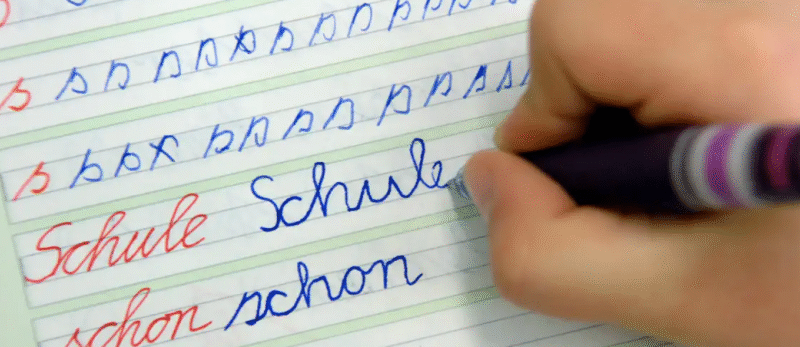 s s s s s s s s s s s s s
s s s s s s s s s s s s
Schule Schule
schon schon